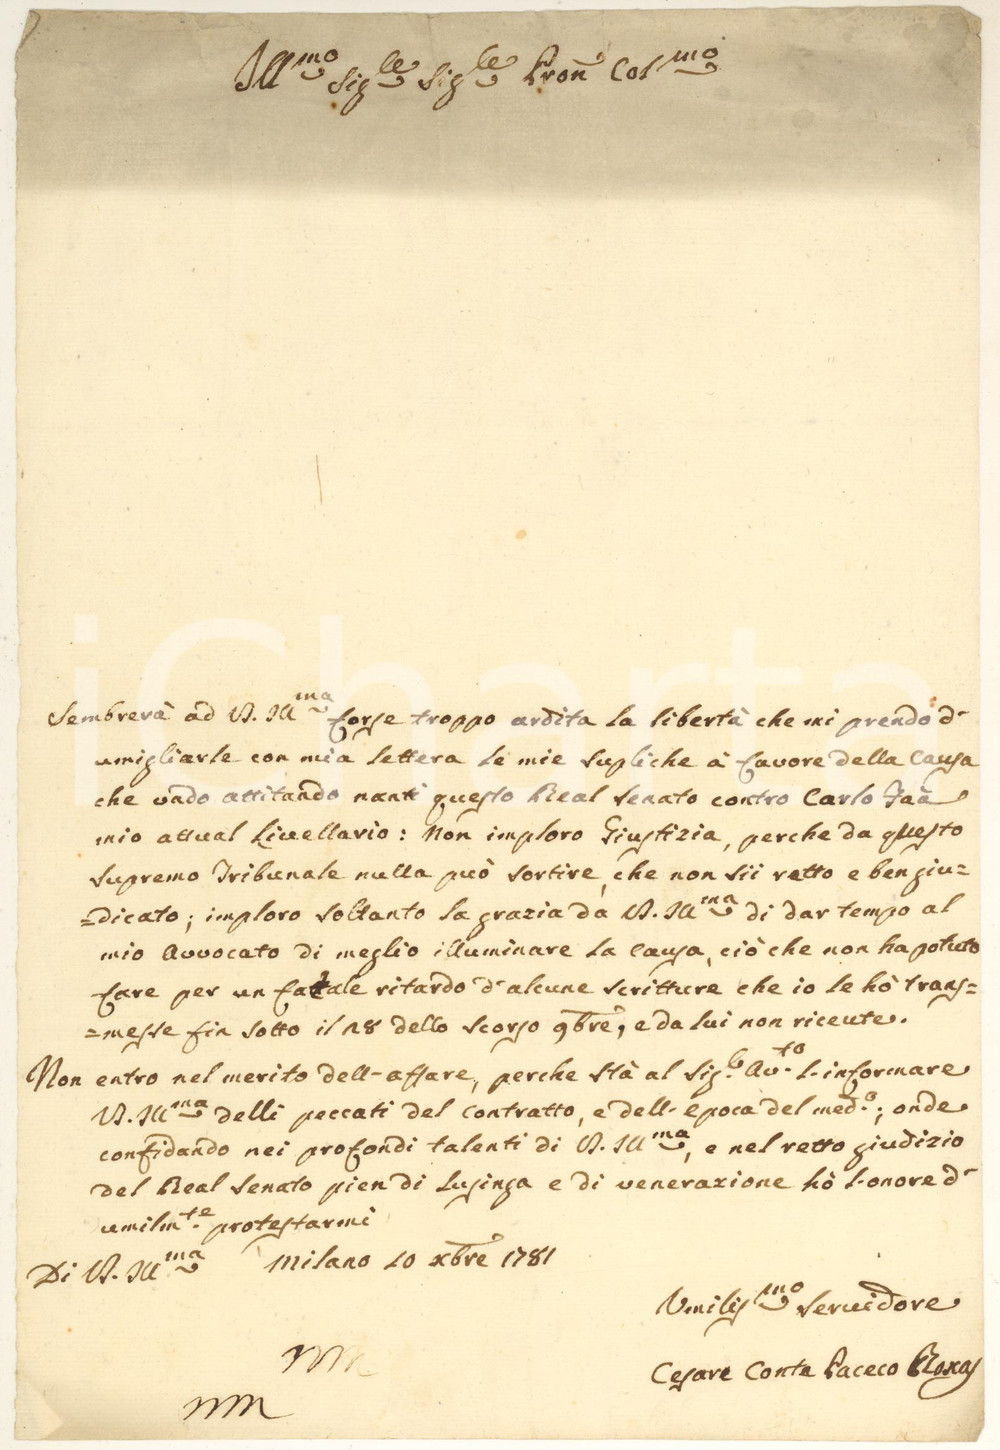 Ill.mo Sig.le Sig.le Pron Col.mo
Sembrerà ad V. Ill.ma forse troppo ardita la libertà che mi prendo d'
umigliarle con mia lettera le mie supliche à favore della causa
che vado attitando nanti questo Real Senato contro Carlo Faà
mio attual Livellario: Non imploro Giustizia, perche da questo
supremo Tribunale nulla può sortire, che non sii retto e ben giu=
=dicato; imploro soltanto la grazia da V. Ill.ma di dar tempo al
mio Avvocato di meglio illuminare la causa, ciò che non ha potuto
fare per un fattale ritardo d'alcune scritture che io le hò trans=
=messe fin sotto il 28 dello scorso 9bre, e da lui non riceute.
Non entro nel merito dell'affare, perche stà al Sig.r Av.to l'informare
V. Ill.ma delli peccati del contratto, e dell'epoca del med.o; onde
confidando nei profondi talenti di V. Ill.ma, e nel retto giudizio
del Real Senato pien di lusinga e di venerazione hò l'onore d'
umilm.te protestarmi
Di V. Ill.ma Milano 10 xbre 1781
Umilis.mo Servidore
Cesare Conte Paceco Roxas